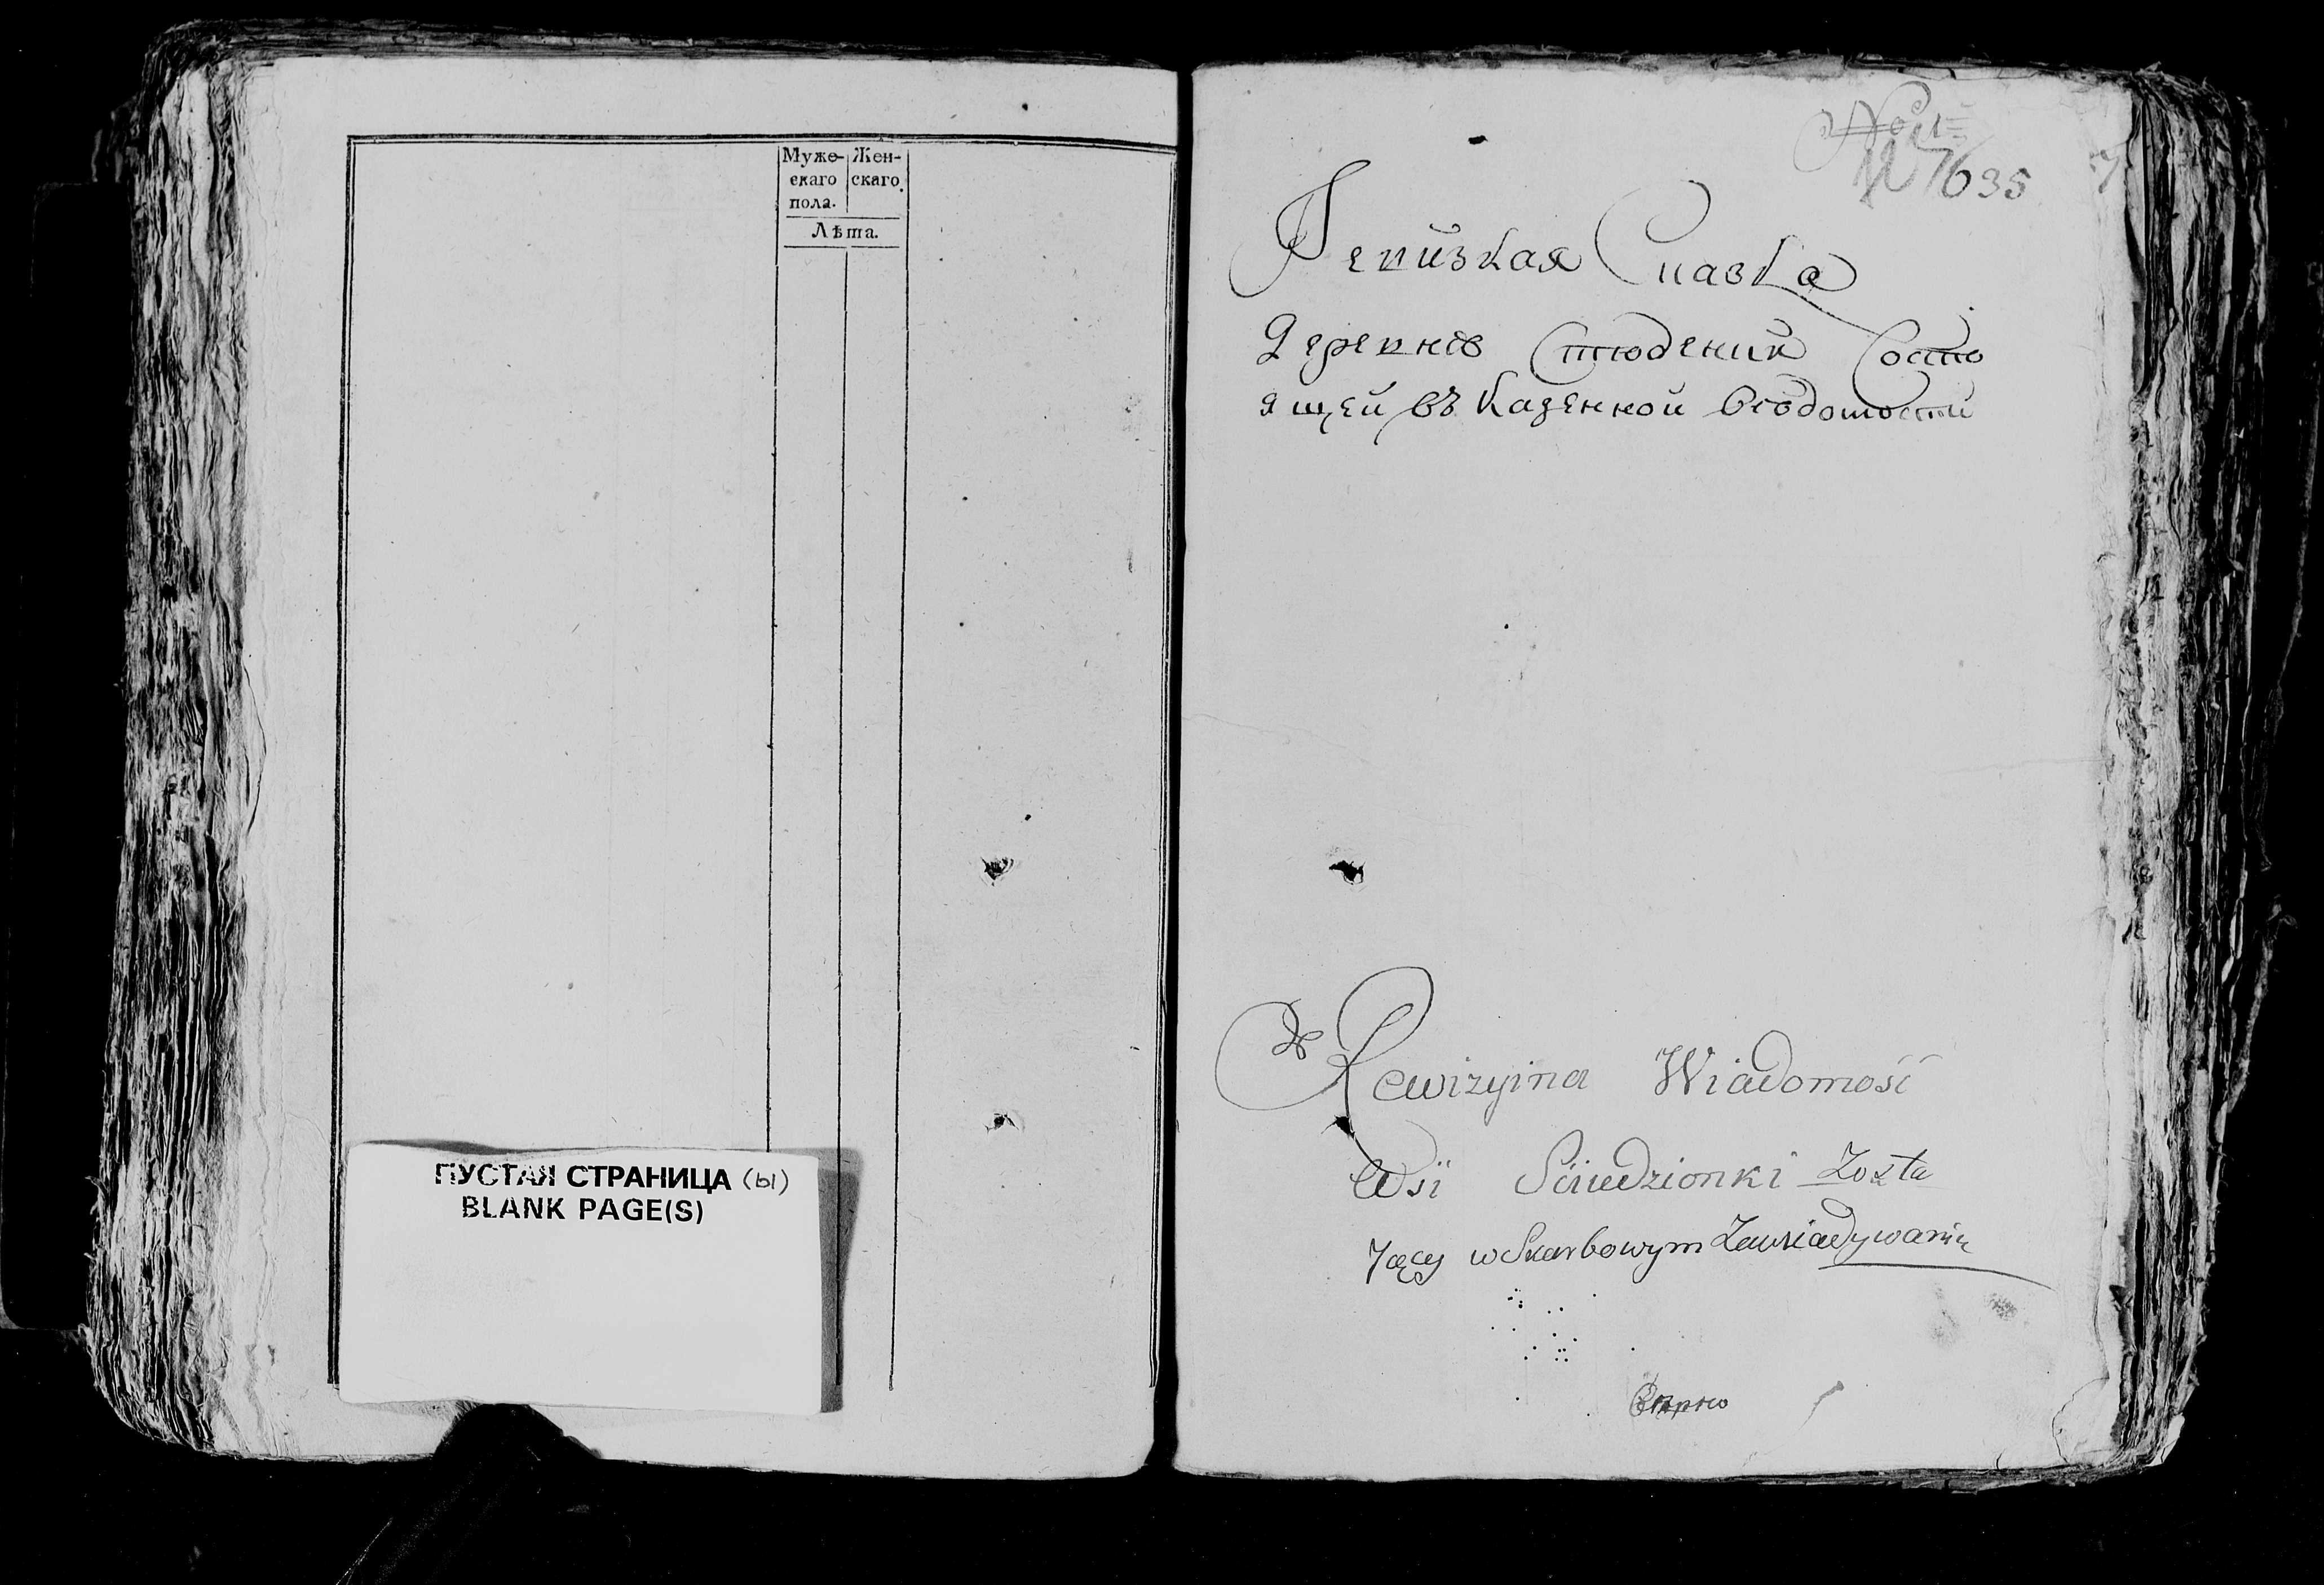 Муже- Жен-
скаго скаго.
пола.
Лѣта.
ПУСТАЯ СТРАНИЦА (ы)
BLANK PAGE(S)
№ 7635
Ревизкая Сказка
Деревнѣ Стюденик Состо
ящей въ Казенной Вѣдомости
Rewizyina Wiadomość
Wsi Sciudzionki Zosta
Jącey w Skarbowym Zawiadywaniu
Вѣрно